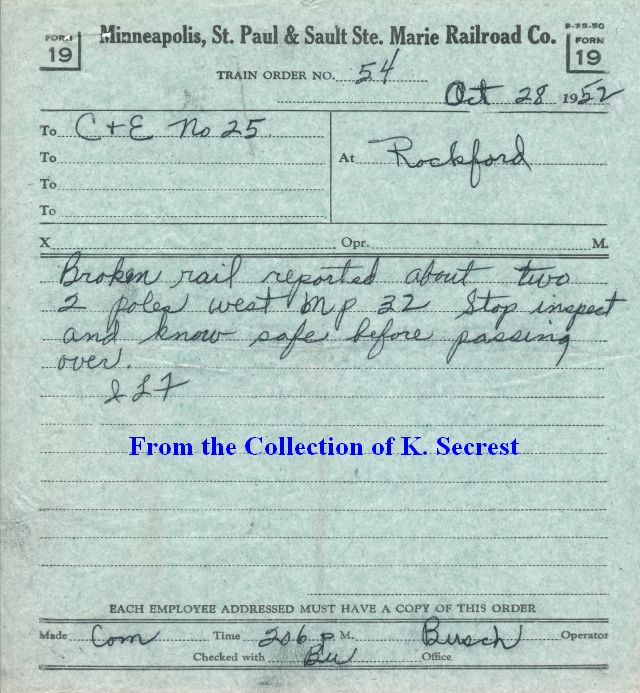 FORM 19
Minneapolis, St. Paul & Sault Ste. Marie Railroad Co.
9-25-50
FORM 19
TRAIN ORDER NO. 54
Oct 28 1952
To C + E No 25
At Rockford
To
To
To
X Opr. M.
Broken rail reported about two
2 poles west MP 32 Stop inspect
and know safe before passing
over.
From the Collection of K. Secrest
EACH EMPLOYEE ADDRESSED MUST HAVE A COPY OF THIS ORDER
Made Com Time 206 p M. Busch Operator
Checked with Bu Office